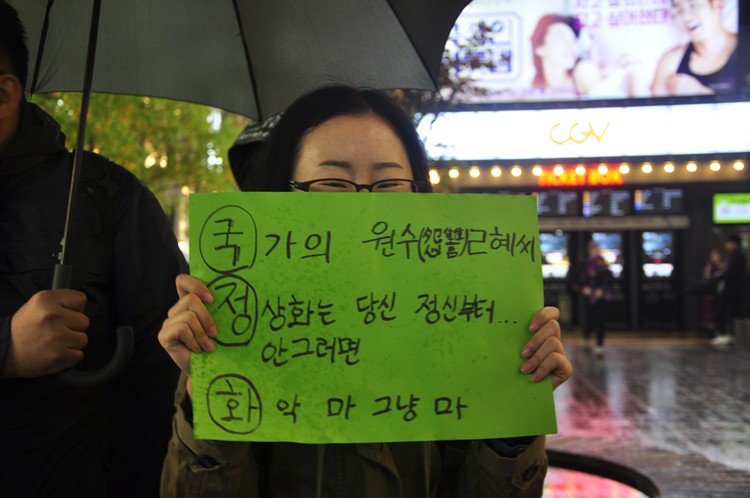 CGV
국가의 원쉬(怨讐)근혜씨
정상화는 당신 정신부터...
안그러면
화악 마 그냥 마